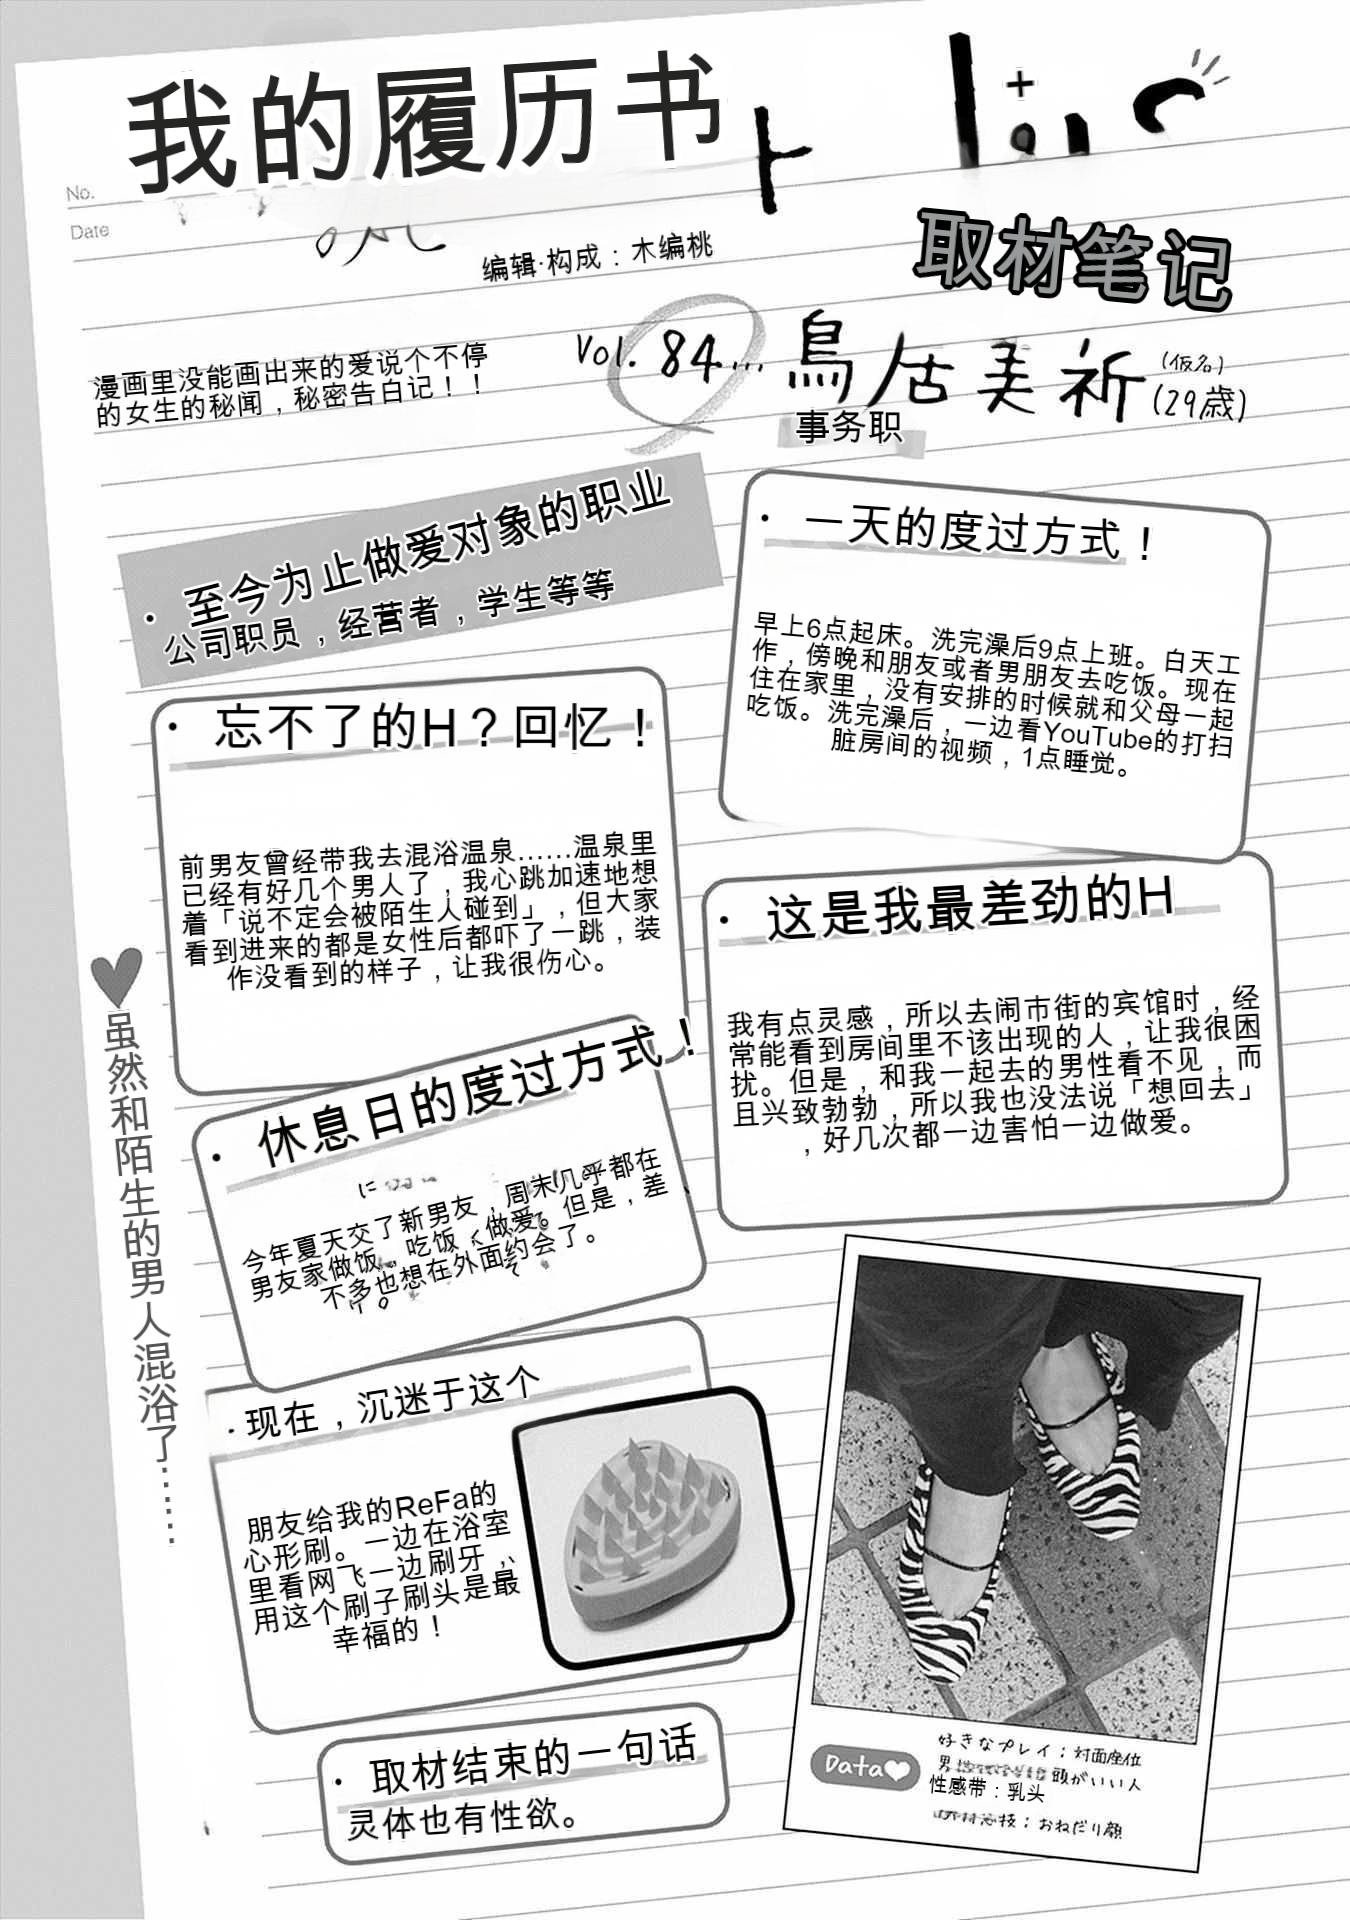 我的履历书
No.
Date
编辑·构成：木编桃
取材笔记
漫画里没能画出来的爱说个不停
的女生的秘闻，秘密告白记！！
Vol. 84... 鳥居美祈 (仮名) (29歳)
事务职
· 至今为止做爱对象的职业
公司职员，经营者，学生等等
· 一天的度过方式！
早上6点起床。洗完澡后9点上班。白天工
作，傍晚和朋友或者男朋友去吃饭。现在
住在家里，没有安排的时候就和父母一起
吃饭。洗完澡后，一边看YouTube的打扫
脏房间的视频，1点睡觉。
· 忘不了的H？回忆！
前男友曾经带我去混浴温泉……温泉里
已经有好几个男人了，我心跳加速地想
着「说不定会被陌生人碰到」，但大家
看到进来的都是女性后都吓了一跳，装
作没看到的样子，让我很伤心。
· 这是我最差劲的H
我有点灵感，所以去闹市街的宾馆时，经
常能看到房间里不该出现的人，让我很困
扰。但是，和我一起去的男性看不见，而
且兴致勃勃，所以我也没法说「想回去」
，好几次都一边害怕一边做爱。
虽然和陌生的男人混浴了……
· 休息日的度过方式！
今年夏天交了新男友，周末几乎都在
男友家做饭，吃饭，做爱。但是，差
不多也想在外面约会了。
· 现在，沉迷于这个
朋友给我的ReFa的
心形刷。一边在浴室
里看网飞一边刷牙，
用这个刷子刷头是最
幸福的！
· 取材结束的一句话
灵体也有性欲。
Data
好きなプレイ；対面座位
頭がいい人
性感带：乳头
技；おねだり顔